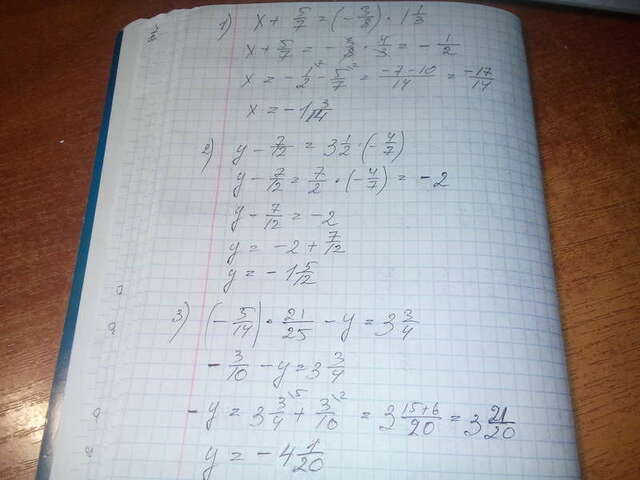 1) x + 5/7 = (- 3/8) · 1 1/3
x + 5/7 = - 3/8 · 4/3 = - 1/2
x = - 1/2 - 5/7 = (-7-10)/14 = -17/14
x = -1 3/14
2) y - 7/12 = 3 1/2 · (- 4/7)
y - 7/12 = 7/2 · (- 4/7) = -2
y - 7/12 = -2
y = -2 + 7/12
y = -1 5/12
3) (- 5/14) · 21/25 - y = 3 3/4
- 3/10 - y = 3 3/4
- y = 3 3/4 \5 + 3/10 \2 = 3 (15+6)/20 = 3 21/20
y = -4 1/20